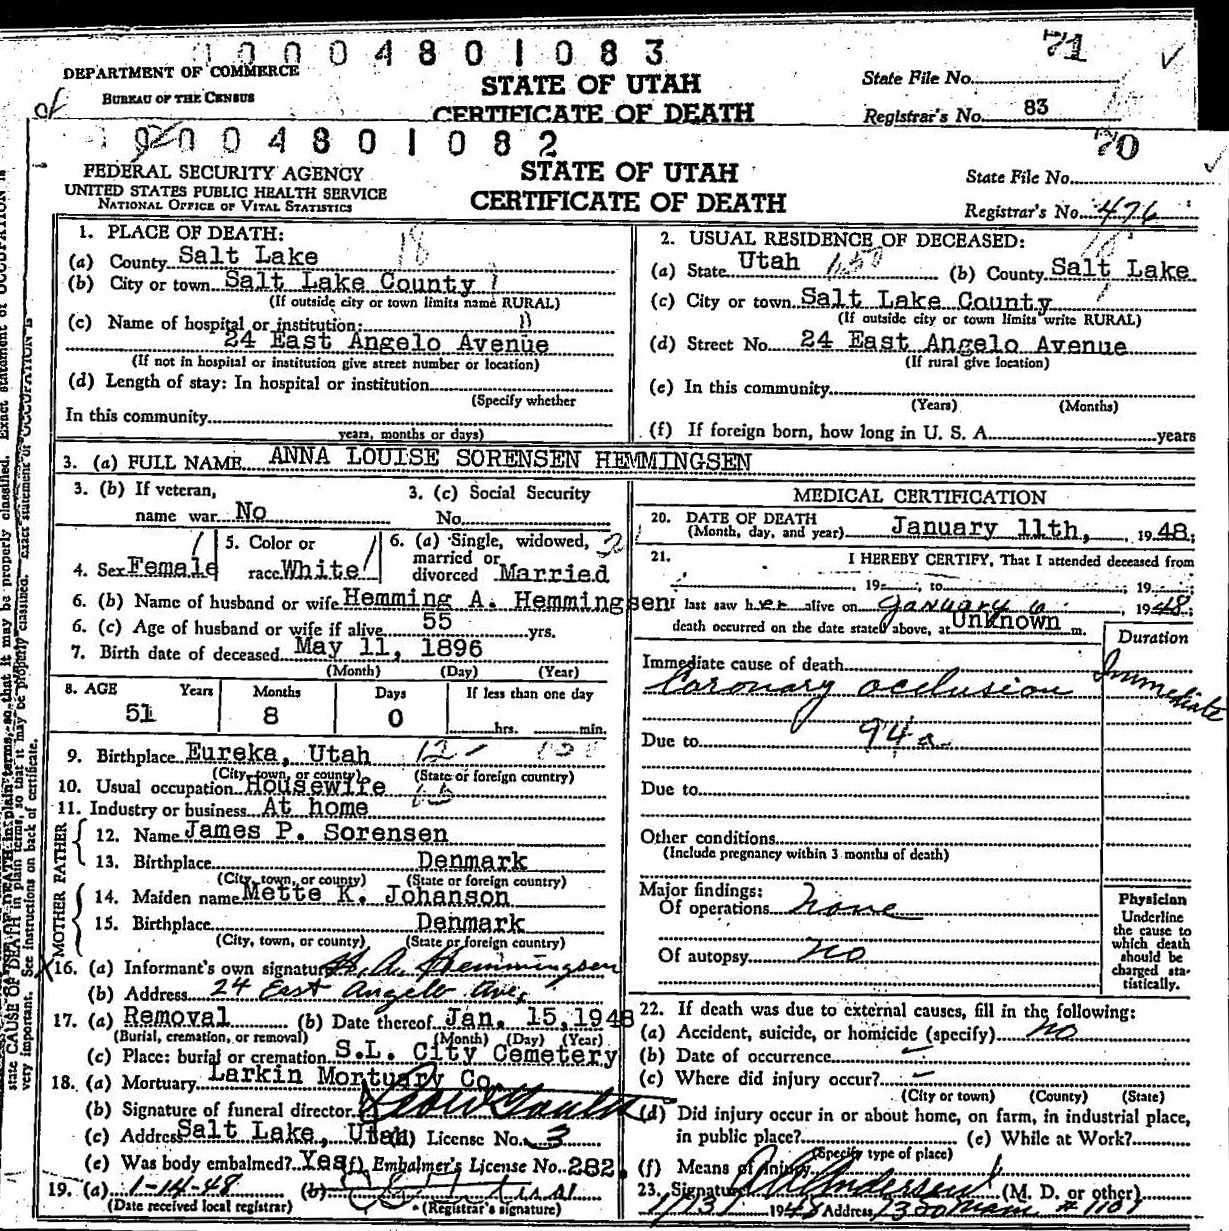 10004801083
71
DEPARTMENT OF COMMERCE
BUREAU OF THE CENSUS
STATE OF UTAH
CERTIFICATE OF DEATH
State File No.
Registrar's No. 83
of
0004801082
70
FEDERAL SECURITY AGENCY
UNITED STATES PUBLIC HEALTH SERVICE
NATIONAL OFFICE OF VITAL STATISTICS
STATE OF UTAH
CERTIFICATE OF DEATH
State File No.
Registrar's No. 476
1. PLACE OF DEATH: 18
(a) County Salt Lake
(b) City or town Salt Lake County
(If outside city or town limits name RURAL)
(c) Name of hospital or institution:
24 East Angelo Avenue
(If not in hospital or institution give street number or location)
(d) Length of stay: In hospital or institution
(Specify whether
In this community
years, months or days)
2. USUAL RESIDENCE OF DECEASED:
(a) State Utah (b) County Salt Lake
(c) City or town Salt Lake County
(If outside city or town limits write RURAL)
(d) Street No. 24 East Angelo Avenue
(If rural give location)
(e) In this community
(Years) (Months)
(f) If foreign born, how long in U. S. A. years
3. (a) FULL NAME ANNA LOUISE SORENSEN HEMMINGSEN
3. (b) If veteran,
name war No
3. (c) Social Security
No.
4. Sex Female
5. Color or
race White
6. (a) Single, widowed,
married or
divorced Married
6. (b) Name of husband or wife Hemming A. Hemmingsen
6. (c) Age of husband or wife if alive 55 yrs.
7. Birth date of deceased May 11, 1896
(Month) (Day) (Year)
8. AGE Years Months Days If less than one day
51 8 0 hrs. min.
9. Birthplace Eureka, Utah
(City, town, or county) (State or foreign country)
10. Usual occupation Housewife
11. Industry or business At home
FATHER
12. Name James P. Sorensen
13. Birthplace Denmark
(City, town, or county) (State or foreign country)
MOTHER
14. Maiden name Mette K. Johanson
15. Birthplace Denmark
(City, town, or county) (State or foreign country)
X16. (a) Informant's own signature H. A. Hemmingsen
(b) Address 24 East Angelo Ave,
17. (a) Removal (b) Date thereof Jan. 15, 1948
(Burial, cremation, or removal) (Month) (Day) (Year)
(c) Place: burial or cremation S.L. City Cemetery
18. (a) Mortuary Larkin Mortuary Co.
(b) Signature of funeral director
(c) Address Salt Lake, Utah (d) License No. 3
(e) Was body embalmed? Yes (f) Embalmer's License No. 282.
19. (a) 1-14-48 (b)
(Date received local registrar) (Registrar's signature)
MEDICAL CERTIFICATION
20. DATE OF DEATH
(Month, day, and year) January 11th, 1948;
21. I HEREBY CERTIFY, That I attended deceased from
19 , to , 19 ;
I last saw her alive on January 6 1948;
death occurred on the date stated above, at Unknown m.
Duration
Immediate cause of death
Coronary occlusion Immediate
Due to 94a
Due to
Other conditions
(Include pregnancy within 3 months of death)
Major findings:
Of operations none
Of autopsy no
Physician
Underline
the cause to
which death
should be
charged sta-
tistically.
22. If death was due to external causes, fill in the following:
(a) Accident, suicide, or homicide (specify) no
(b) Date of occurrence
(c) Where did injury occur?
(City or town) (County) (State)
(d) Did injury occur in or about home, on farm, in industrial place,
in public place? (e) While at Work?
(Specify type of place)
(f) Means of injury
23. Signature (M. D. or other)
1/13/ 1948 Address
state CAUSE OF DEATH in plain terms, so that it may be properly classified. Exact statement of OCCUPATION is
very important. See instructions on back of certificate.